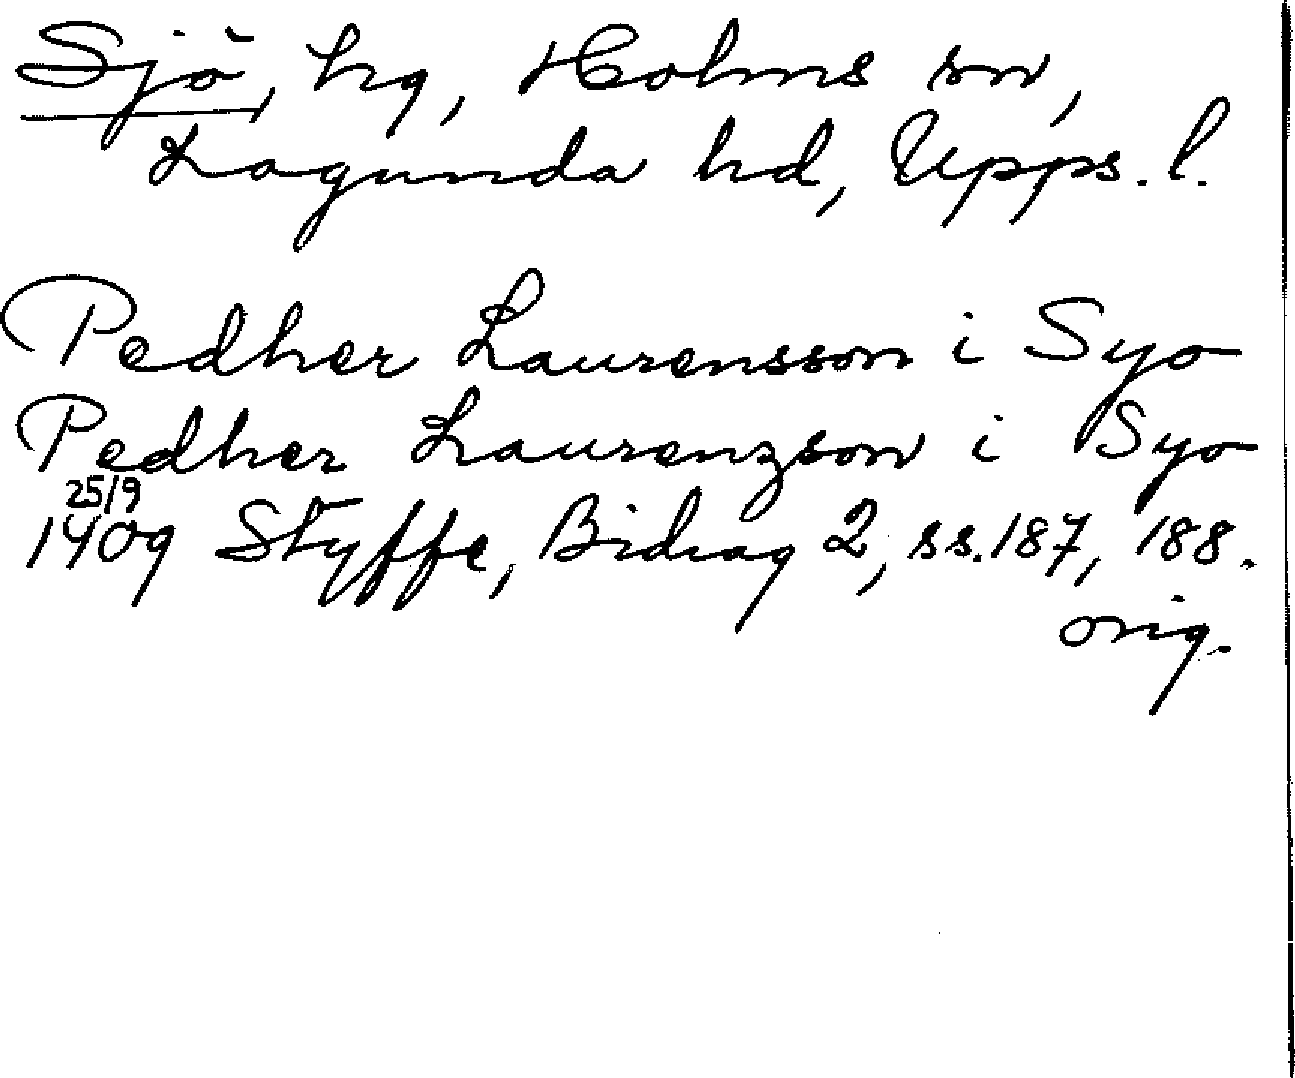 Sjö, hg, Holms sn,
Lagunda hd, Upps. l.
Pedher Laurensson i Syo
Pedher Laurenzson i Syo
25/9
1409 Styffe, Bidrag 2, ss. 187, 188.
orig.